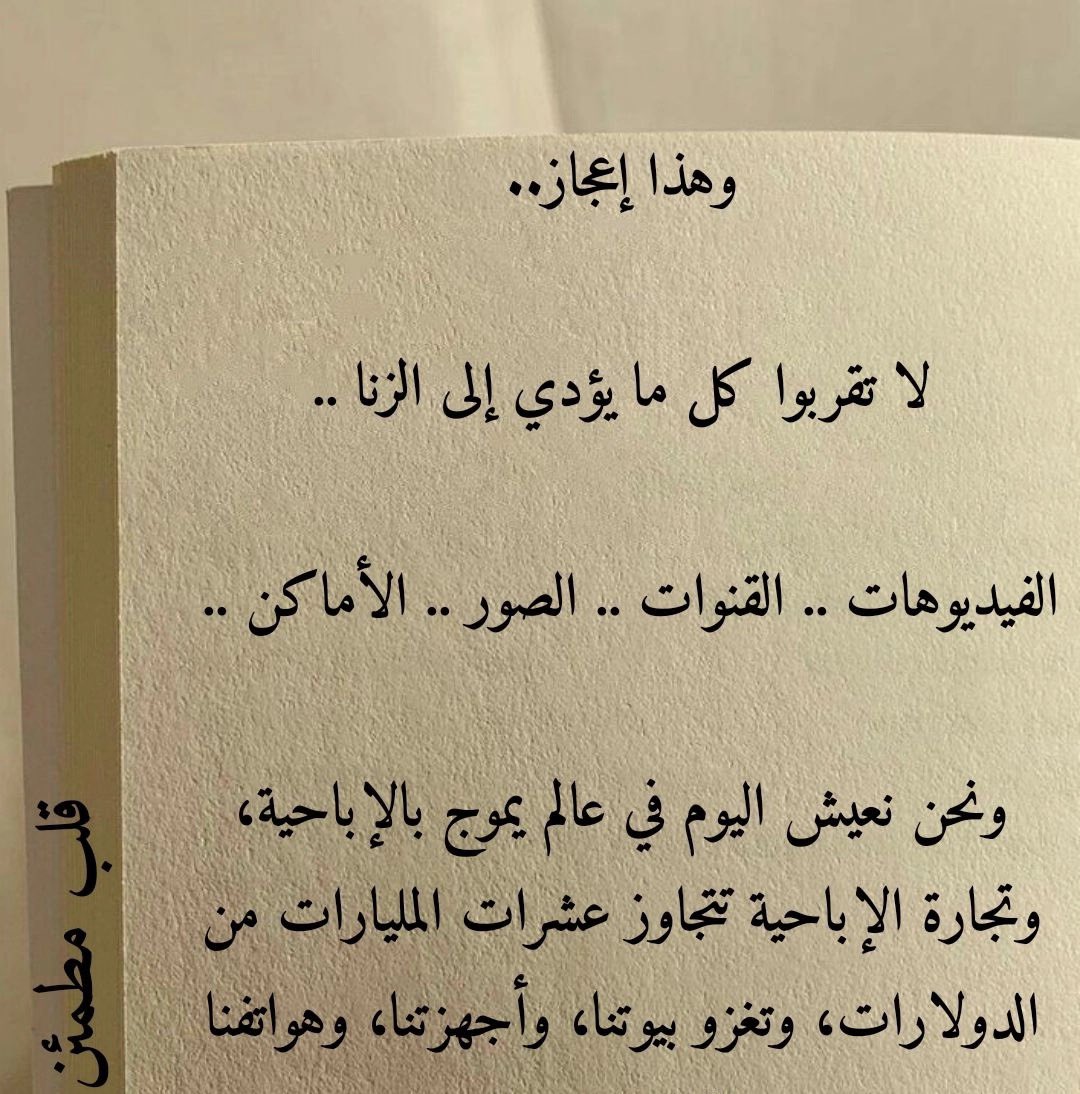 وهذا إعجاز..
لا تقربوا كل ما يؤدي إلى الزنا ..
الفيديوهات .. القنوات .. الصور .. الأماكن ..
ونحن نعيش اليوم في عالم يموج بالإباحية،
وتجارة الإباحية تتجاوز عشرات المليارات من
الدولارات، وتغزو بيوتنا، وأجهزتنا، وهواتفنا
قلب مطمئن